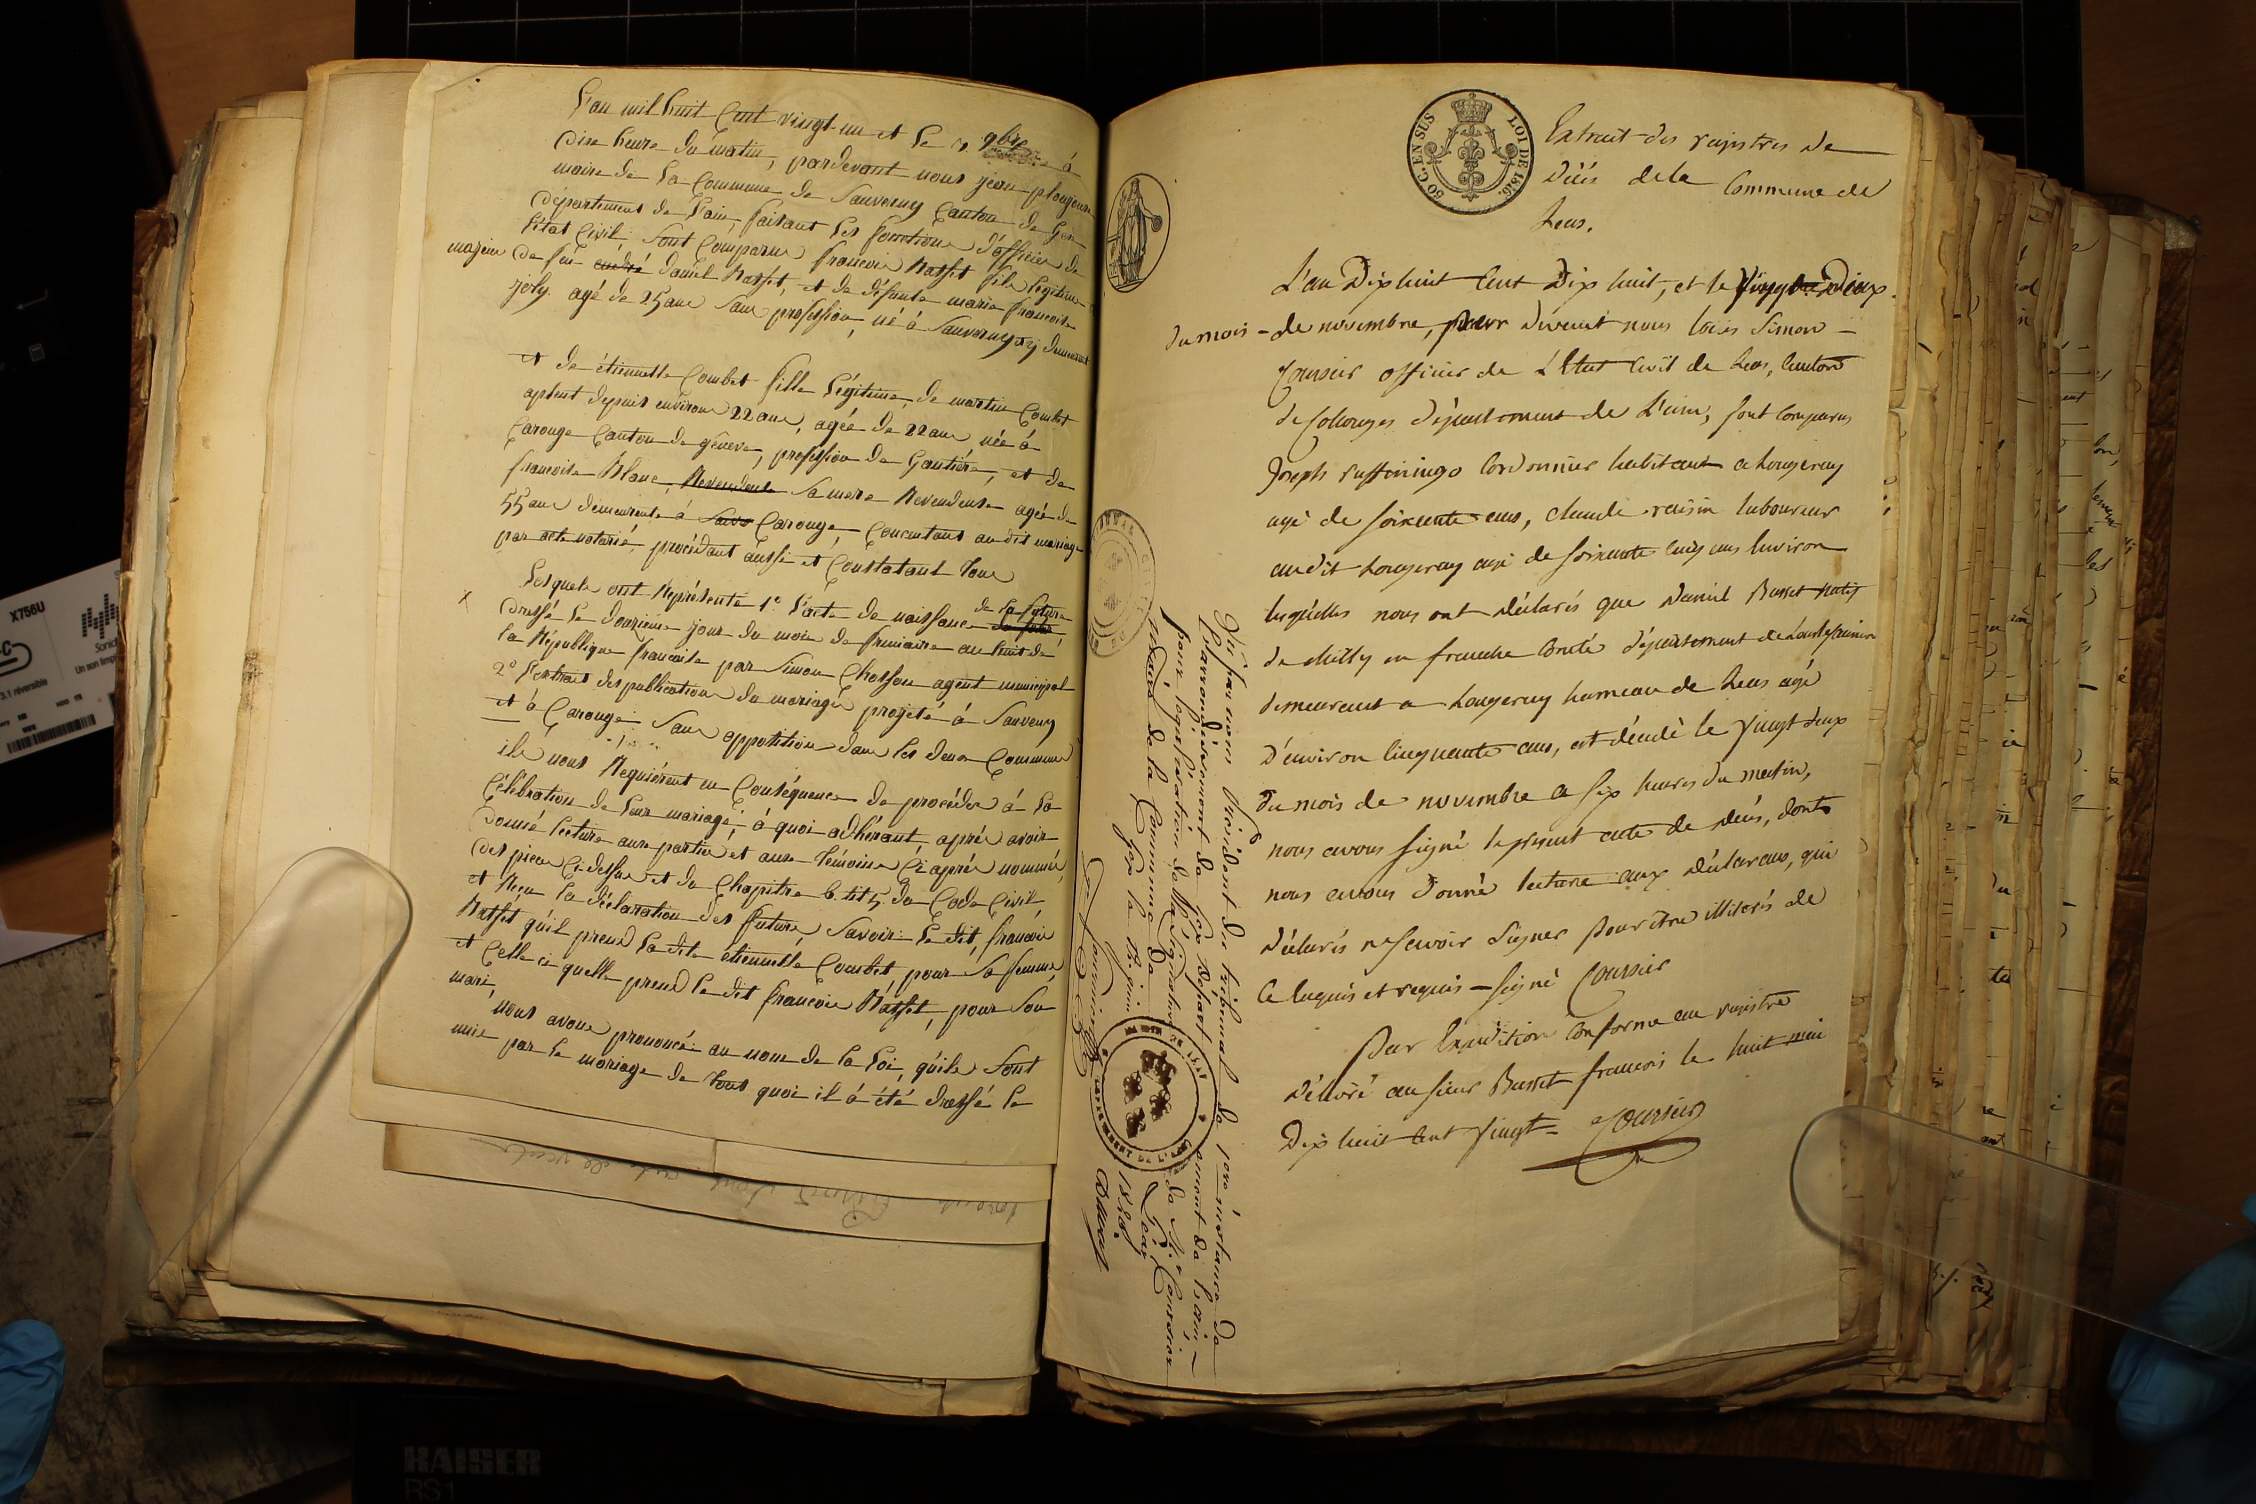 L'an mil huit Cent vingt-un et le 9bre à
dix heure du matin, pardevant nous jean plongeon
maire de la Commune de Sauverny Canton de Gex
département de l'ain, faisant les fonctions d'officier de
l'état Civil, sont Comparus françois Basset fils légitime
majeur de feu andré daniel Basset, et de défunte marie françoise
joly. agé de 25 ans sans profession, né à Sauverny et y demeurant
et de étiennette Combet fille légitime, de martin Combet
absent depuis environ 22 ans, agée de 22 ans, née à
Carouge Canton de genève, profession de Gantière, et de
francoise Blanc, Revendeuse sa mere Revendeuse agée de
55 ans demeurante à Sauv Carouge, Concentant au dit mariage
par acte notarié, procédant aussi et Constatant tous
X
Lesquels ont Représenté 1° l'acte de naissance de la future
dressé le douzième jour du mois de frimaire an huit de
la République francoise par Simon Chosson agent municipal
2° l'extrait des publications du mariage projeté à Sauverny
et à Carouge Sans opposition dans les deux Commune
ils nous Requièrent en Conséquence de procéder à la
Célébration de leur mariage, à quoi adhérant, après avoir
Donné lecture aux parties et aux témoins Ci après nommés,
des pieces Ci-dessus et du Chapitre 6. tit 5. du Code Civil,
et Reçu la déclaration des futurs, Savoir: le dit, francois
Basset qu'il prend la dite étiennette Combet pour sa femme,
et Celle ci quelle prend le dit francois Basset, pour son
mari,
nous avons prononcé au nom de la Loi, qu'ils sont
unis par le mariage de tous quoi il à été dressé le
80 C. EN SUS
LOI DE 1816.
Extrait des rejistres de
déés de la Commune de
Leas.
L'an Dixhuit Cent Dix huit, et le Vingt Deux
du mois - de novembre, par devent nous Loüis Simon
Coursier officier de L'Etat Civil de Leas, Canton
de Collonges département de L'ain, sont Comparus
Joseph ruffiningo Cordonnier habitant a Longeray
agé de soixente ans, claude raisin laboureur
au dit Longeray agé de soixante cinq ans Environ
lesquelles nous ont déclarés que Daniel Basset natif
de chilly en franche Comté département de
demeurent a Longeray hameau de Leas agé
D'environ Cinquante ans, est décédé le Vingt deux
du mois de novembre a six heures du matin,
nous avons signé le present acte de déés, dont
nous avons donné lecture aux déclarans, qui
déclarés ne savoir signer pour être illiterés de
Ce Enquis et requis - signé Coursier
Par Expedition Conforme au rejistre
Délivré au sieur Basset francois le huit mai
Dix huit Cent Vingt = Coursier
Vu par nous Président du tribunal de 1ere instance de
l'arrondissement de Gex Département de l'ain
pour légalisation de la signature de Mr Coursier
maire de la Commune de Leas
Gex le 18 juin 1820.
X756U
3.1 réversible
KAISER
RS1